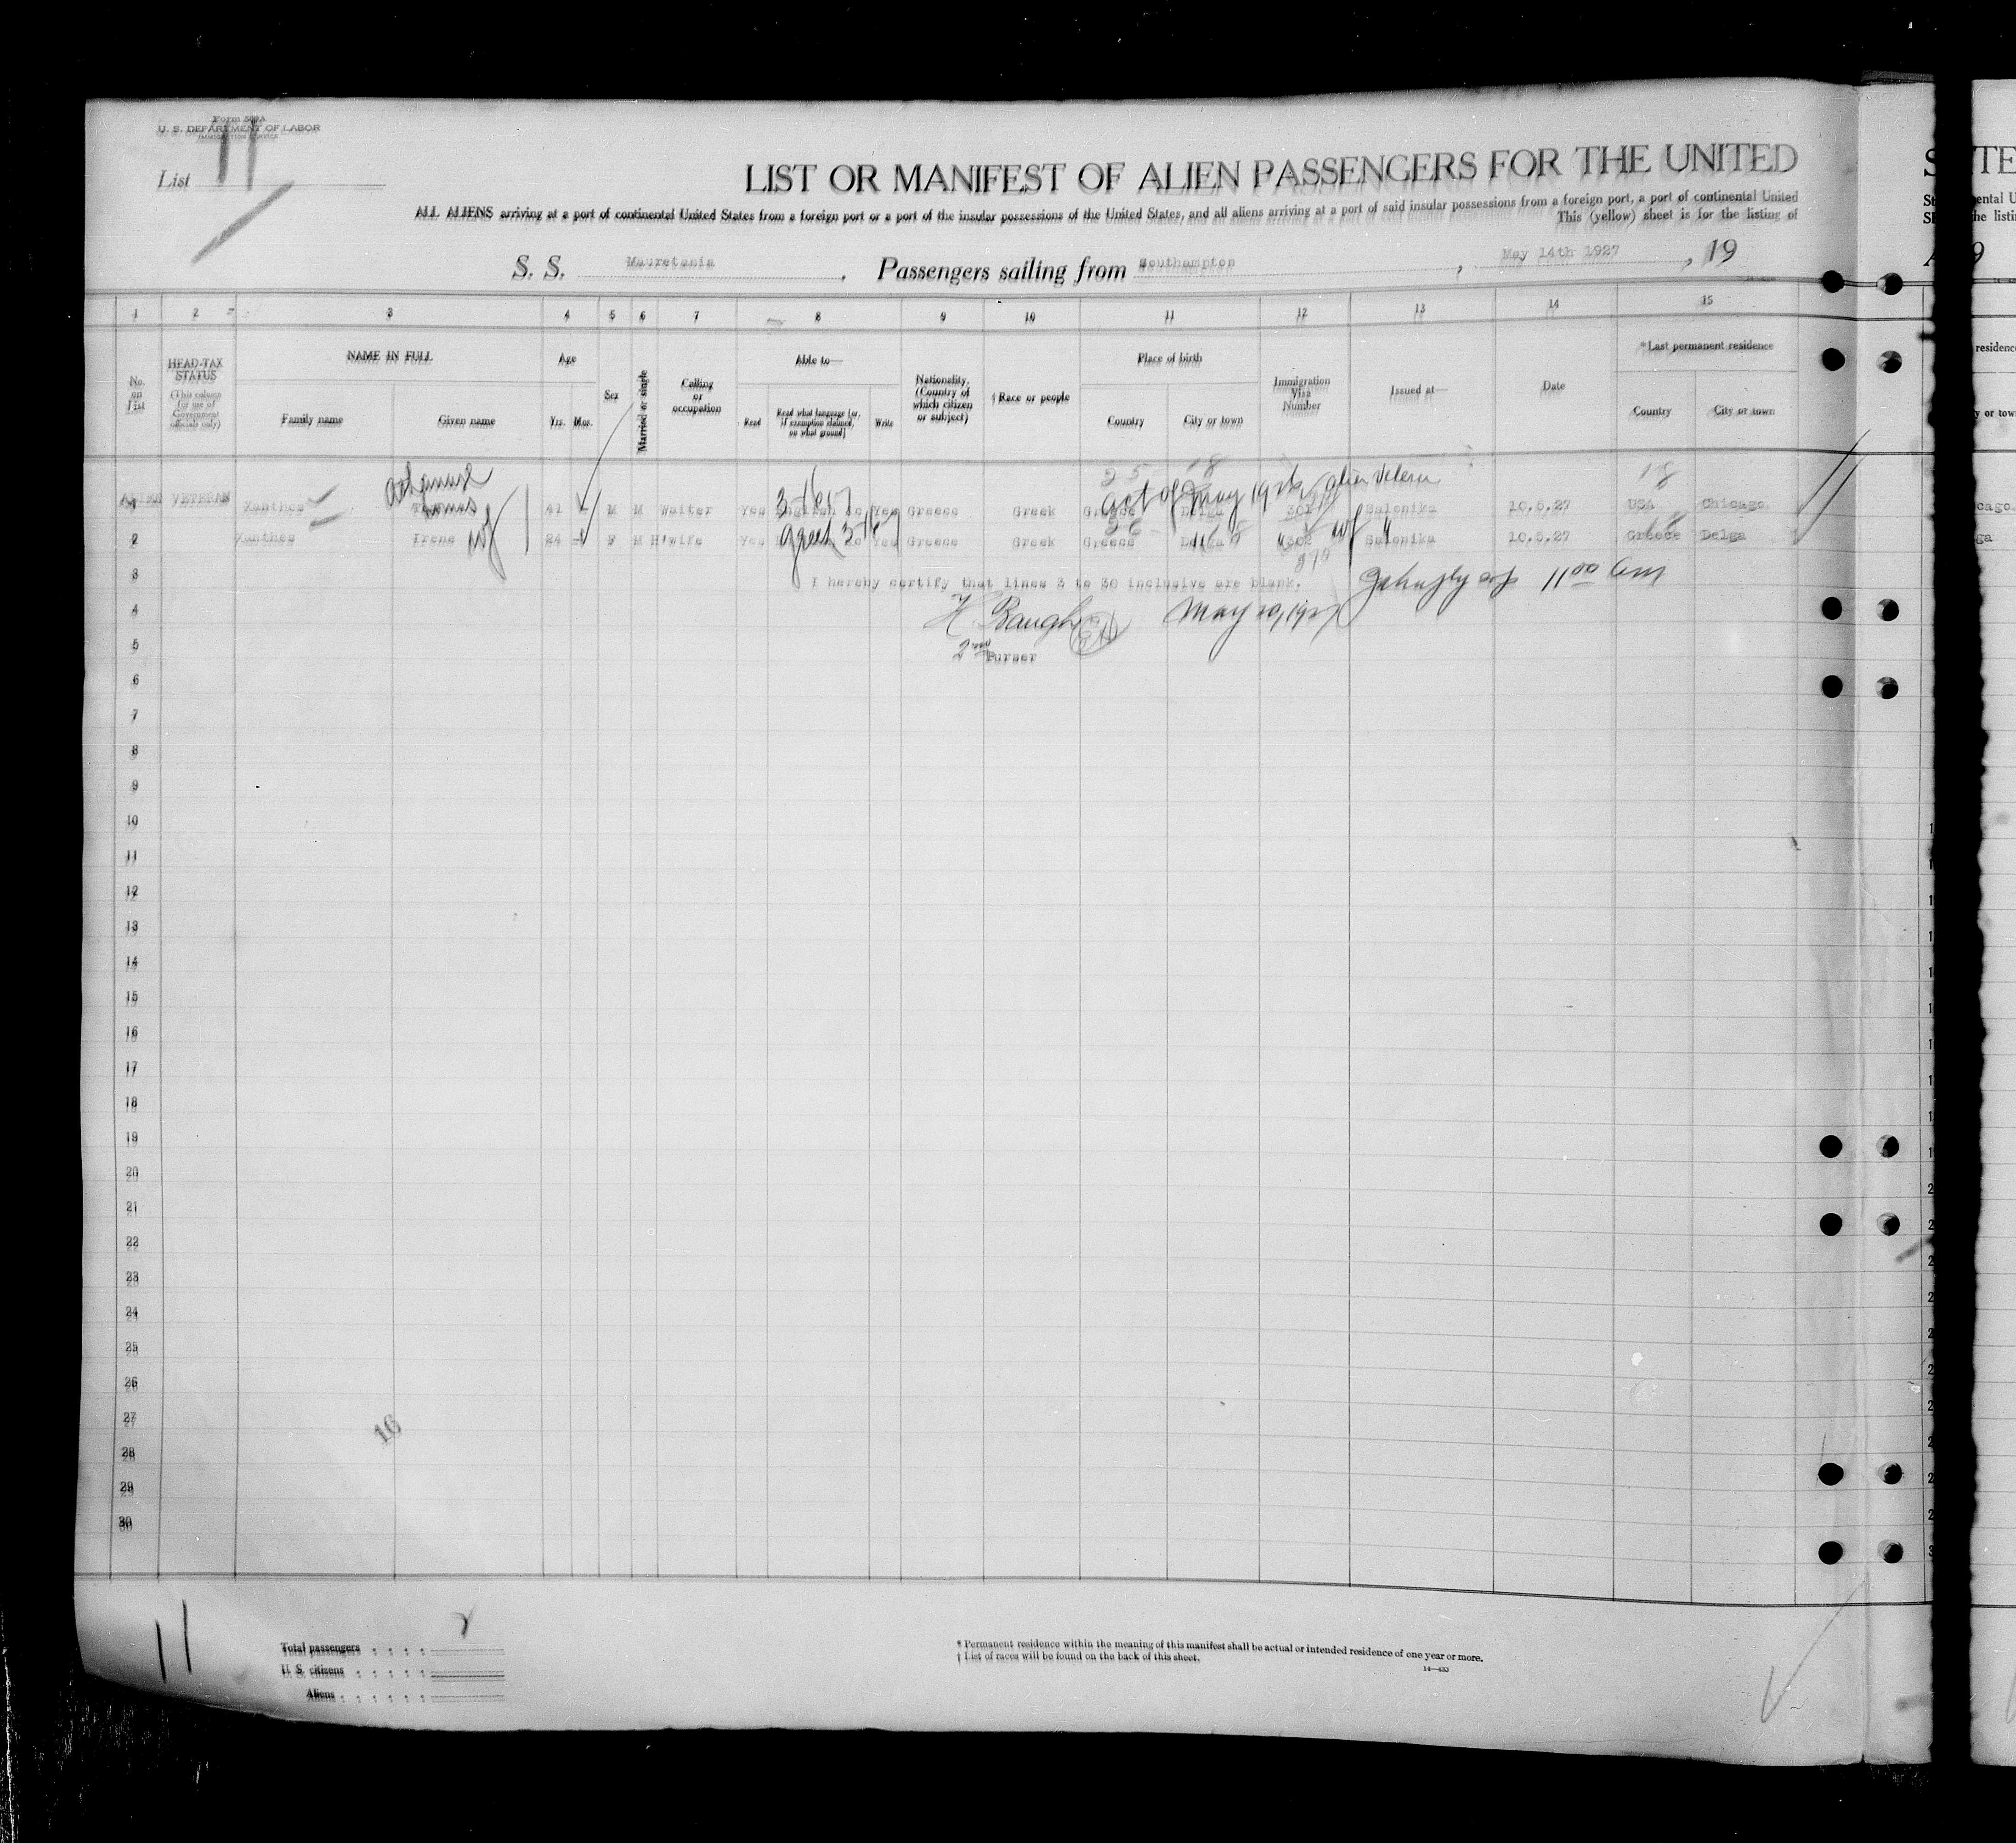 Form 500A
U. S. DEPARTMENT OF LABOR
IMMIGRATION SERVICE
List 11
LIST OR MANIFEST OF ALIEN PASSENGERS FOR THE UNITED
ALL ALIENS arriving at a port of continental United States from a foreign port or a port of the insular possessions of the United States, and all aliens arriving at a port of said insular possessions from a foreign port, a port of continental United
This (yellow) sheet is for the listing of
S. S. Mauretania, Passengers sailing from Southampton, May 14th 1927, 19
1 2 3 4 5 6 7 8 9 10 11 12 13 14 15
No. on List
HEAD-TAX STATUS (This column for use of Government officials only)
NAME IN FULL
Family name Given name
Age
Yrs. Mos.
Sex
Married or single
Calling or occupation
Able to—
Read Read what language (or, if exemption claimed, on what ground) Write
Nationality. (Country of which citizen or subject)
†Race or people
Place of birth
Country City or town
Immigration Visa Number
Issued at—
Date
*Last permanent residence
Country City or town
25 18 18
act of May 1926 alien
ALIEN VETERAN
1 Xanthos Thomas 41 M M Waiter Yes English Yes Greece Greek Greece Delga 301 Salonika 10.5.27 USA Chicago
2 Xanthos Irene wf 24 F M H'wife Yes Greek Yes Greece Greek Greece Delga 302 wf Salonika 10.5.27 Greece Delga
3 I hereby certify that lines 3 to 30 inclusive are blank. 11 00 am
4 H. Baugh May 20, 1927
5 2nd Purser
6
7
8
9
10
11
12
13
14
15
16
17
18
19
20
21
22
23
24
25
26
27
28
29
30
16
11
Total passengers 2
U. S. citizens
Aliens
* Permanent residence within the meaning of this manifest shall be actual or intended residence of one year or more.
† List of races will be found on the back of this sheet.
14—430